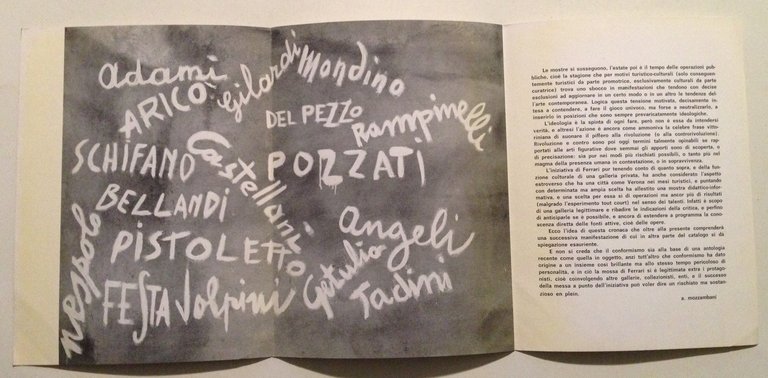 adami
ARICO'
Gilardi
Mondino
DEL PEZZO
Rampinelli
SCHIFANO
Castellano
POZZATI
BELLANDI
nespolo
PISTOLETTO
angeli
Getulio
FESTA
Volpini
Tadini
Le mostre si susseguono, l'estate poi è il tempo delle operazioni pub-
bliche, cioè la stagione che per motivi turistico-culturali (solo conseguen-
temente turistici da parte promotrice, esclusivamente culturali da parte
curatrice) trova uno sbocco in manifestazioni che tendono con decise
esclusioni ad aggiornare in un certo modo o in un altro le tendenze del-
l'arte contemporanea. Logica questa tensione motivata, decisamente in-
tesa a contendere, a fare il gioco univoco, ma forse a neutralizzarlo, a
inserirlo in posizioni che sono sempre prevaricatamente ideologiche.
L'ideologia è la spinta di ogni fare, però non è essa da intendersi
verità, e altresì l'azione è ancora come ammoniva la celebre frase vitto-
riniana di suonare il piffero alla rivoluzione (o alla controrivoluzione).
Rivoluzione e contro sono poi oggi termini talmente opinabili se rap-
portati alle arti figurative dove semmai gli apporti sono di scoperta, e
di precisazione: sia pur nei modi più rischiati possibili, o tanto più nel
magma della presenza umana in contestazione, o in sopravvivenza.
L'iniziativa di Ferrari pur tenendo conto di quanto sopra, e della fun-
zione culturale di una galleria privata, ha anche considerato l'aspetto
estroverso che ha una città come Verona nei mesi turistici, e puntando
con determinata ma ampia scelta ha allestito una mostra didattico-infor-
mativa, e una scelta per essa si di operazioni ma ancor più di risultati
(malgrado l'esperimento tout court) nel senso dei talenti. Infatti è scopo
di una galleria legittimare o ribadire le indicazioni della critica, e perfino
di anticiparle se è possibile, e ancora di estendere a programma la cono-
scenza diretta delle fonti attive, cioè delle opere.
Ecco l'idea di questa cronaca che oltre alla presente comprenderà
una successiva manifestazione di cui in altra parte del catalogo si dà
spiegazione esauriente.
E non si creda che il conformismo sia alla base di una antologia
recente come quella in oggetto, anzi tutt'altro che conformismo ha dato
origine a un insieme così brillante ma allo stesso tempo pericoloso di
personalità, e in ciò la mossa di Ferrari si è legittimata extra i protago-
nisti, cioè coinvolgendo altre gallerie, collezionisti, enti, e il successo
della messa a punto dell'iniziativa può voler dire un rischiato ma sostan-
zioso en plein.
a. mozzambani